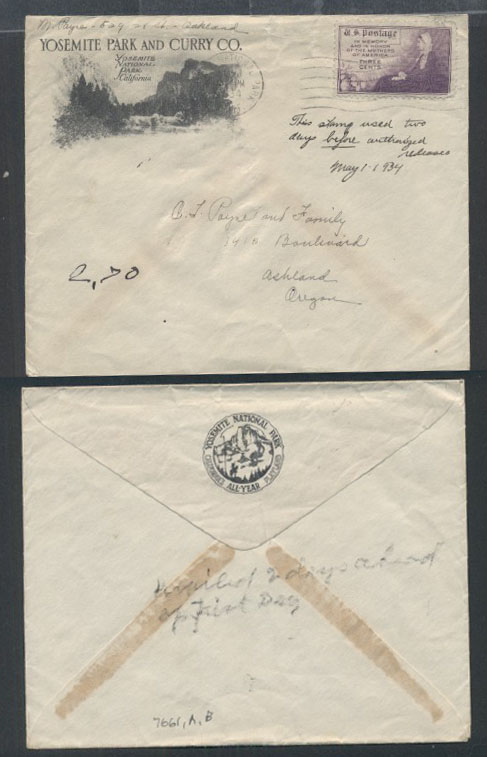 YOSEMITE PARK AND CURRY CO.
YOSEMITE
NATIONAL
PARK
California
U.S. Postage
IN MEMORY
AND IN HONOR
OF THE MOTHERS
OF AMERICA
THREE
CENTS
This stamp used two
days before authorized
releases
May 1-1934
C. T. Payne and Family
Boulevard
Ashland
Oregon
2,70
YOSEMITE NATIONAL PARK
ALL-YEAR PLAYLAND
Mailed 2 days ahead
of First Day
7661, A, B